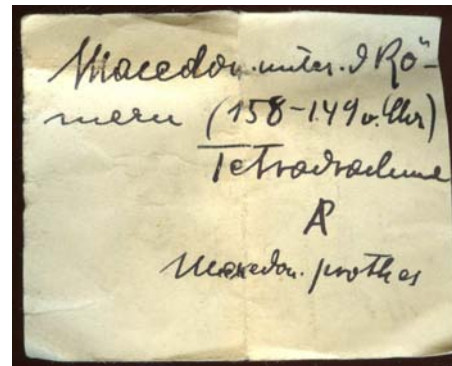 Macedon. unter. d Rö-
mern (158-149 v. Chr)
Tetradrachme
Æ
Makedon. prothes